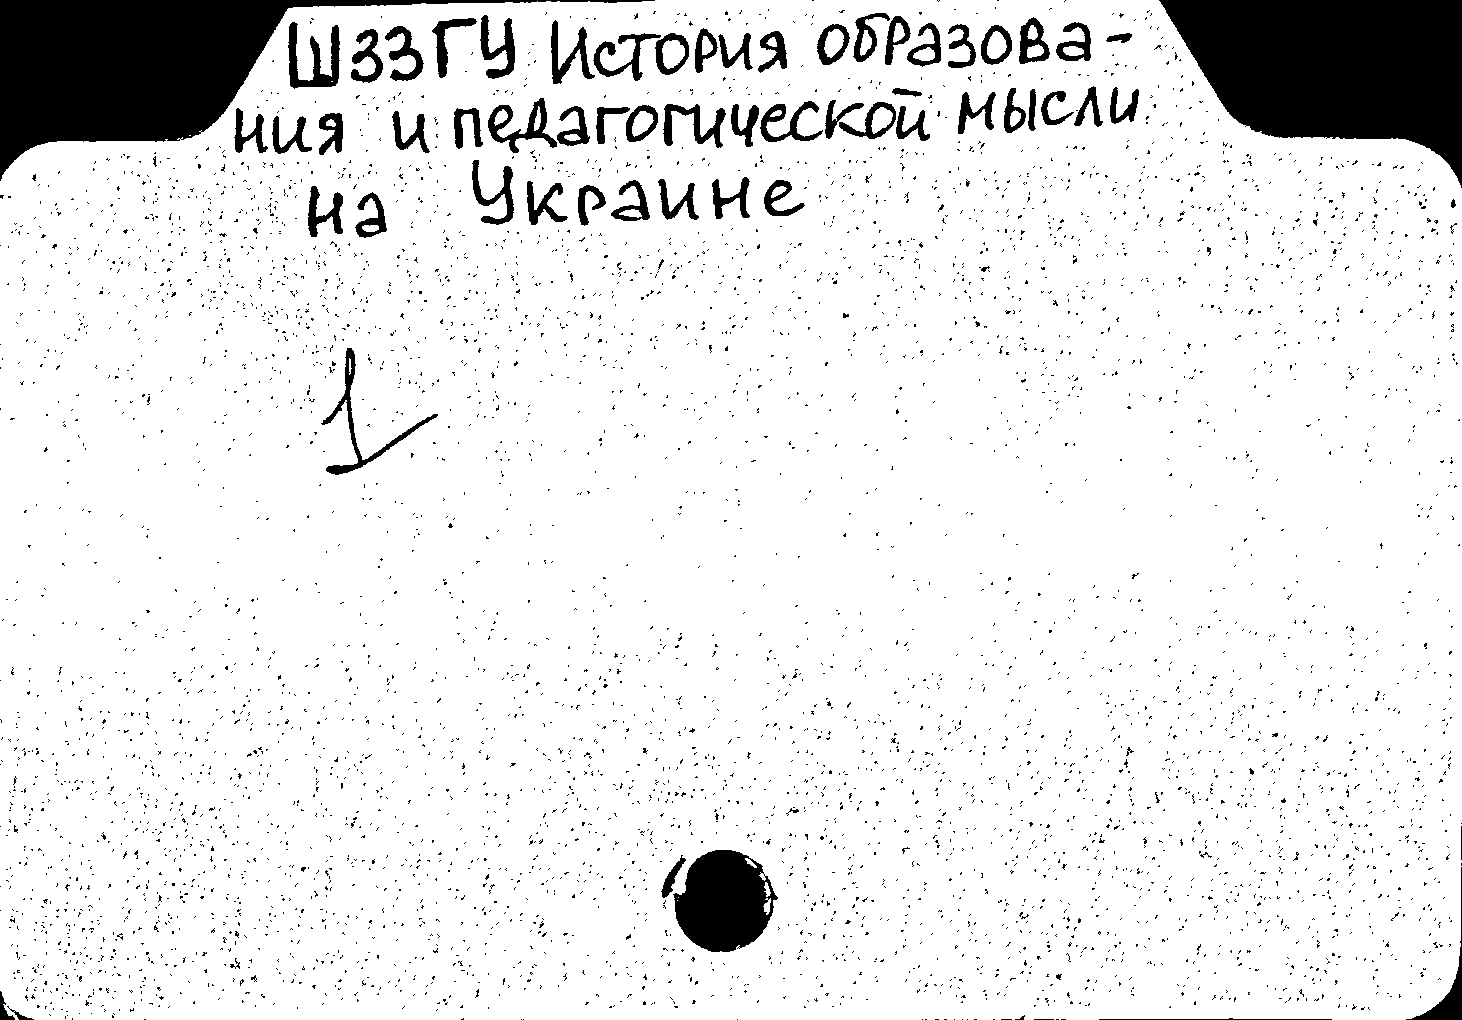 Ш33ГУ История образова-
ния и педагогической мысли
на Украине
1